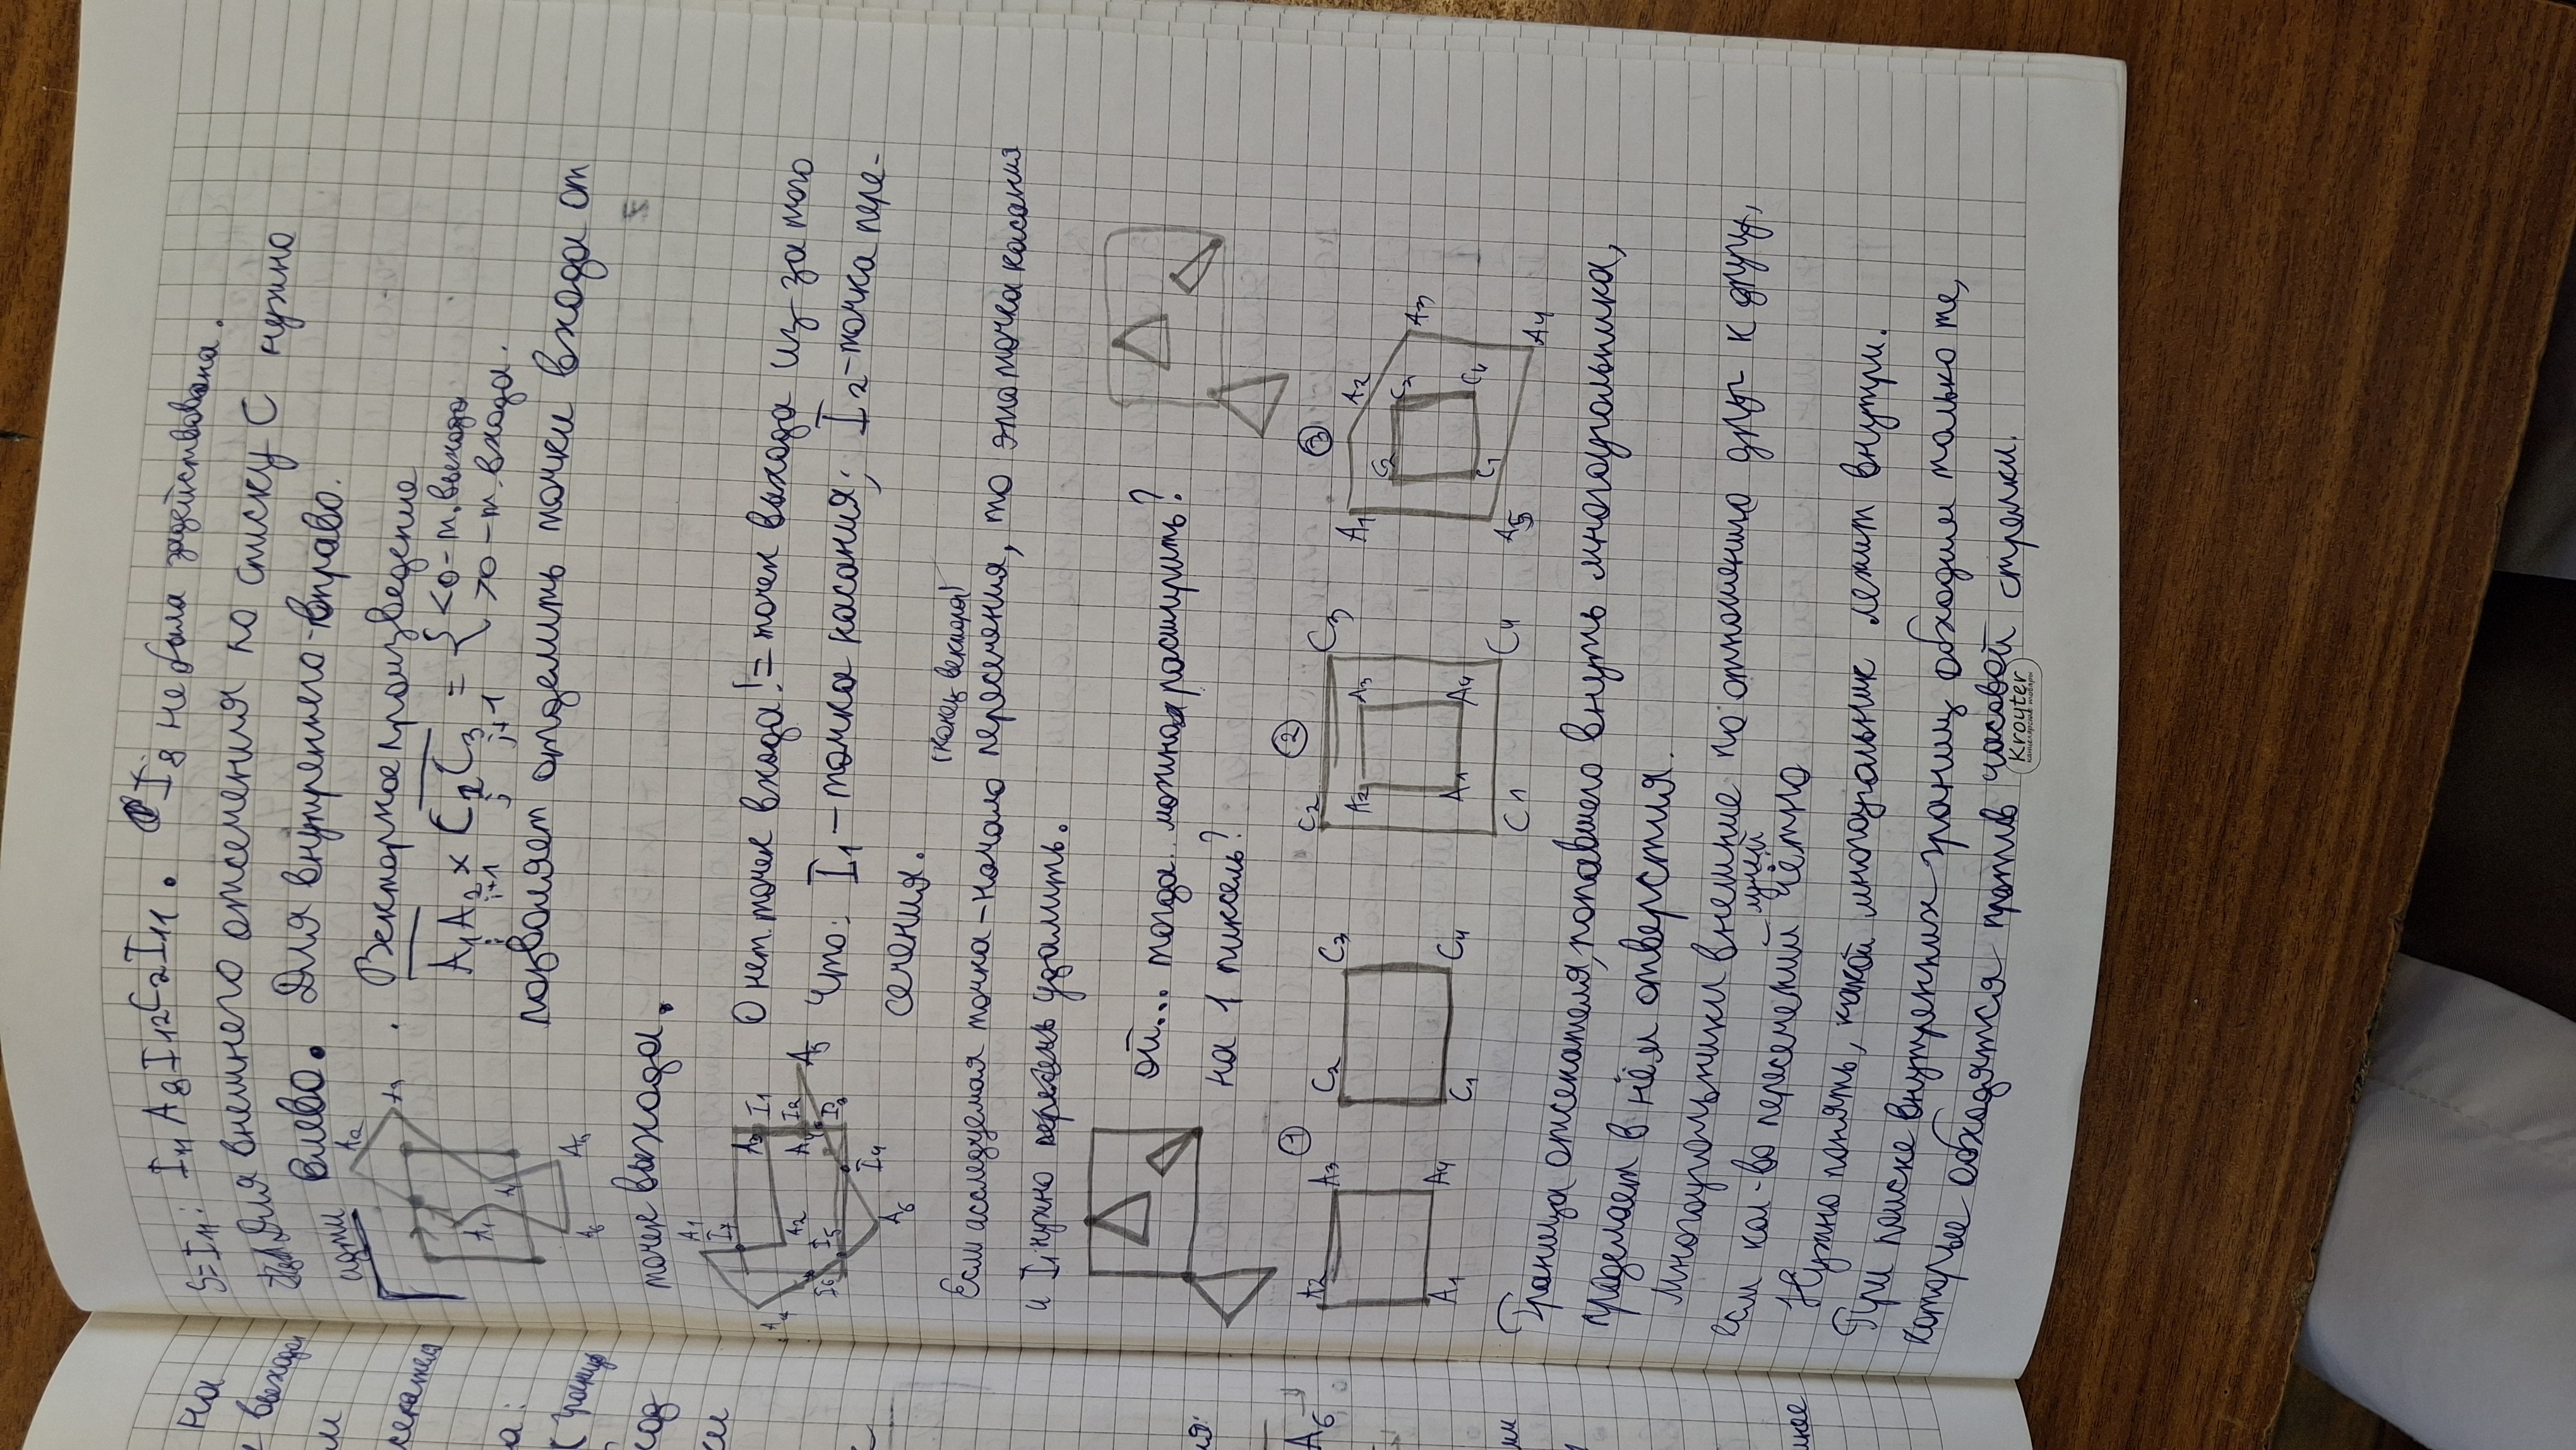 на
выхода
м
секателя
а:
к границ
ход
ки
A6
S=I11: I11 A8 I12 C2 I11. I8 не была задействована.
Для внешнего отсечения по списку C нужно
идти влево. Для внутреннего - вправо.
A2
A3
A1
A4
A6
A5
Векторное произведение
A1A2 × C2C3 = { <0 - т. выхода
i i+1 j j+1 >0 - т. входа.
позволяет отделить точки входа от
точек выхода.
A1
I7
A3 I1
A2
I2
A4
A5
I6 I5
I3
I4
A6
О нет. точек входа != точек выхода из за того
что: I1 - точка касания; I2 - точка пере-
сечения.
(конец вектора)
Если исследуемая точка - начало пересечения, то это точка касания
и I1 нужно удалить.
ой... тогда можно расширить?
на 1 пиксель?
1
A2 A3 C2 C3
A1 A4 C1 C4
2
C2 C3
A2 A3
A1 A4
C1 C4
3
A1 A2
C2 C3
A3
C1 C4
A5
A4
Граница отсекателя, попавшего внутрь многоугольника,
проделает в нём отверстия.
Многоугольники внешние по отношению друг к другу,
если кол-во пересечений лучей чётно
Нужно понять, какой многоугольник лежит внутри.
При поиске внутренних границ обходим только те,
которые обходятся против часовой стрелки.
Kroyter
канцелярские товары